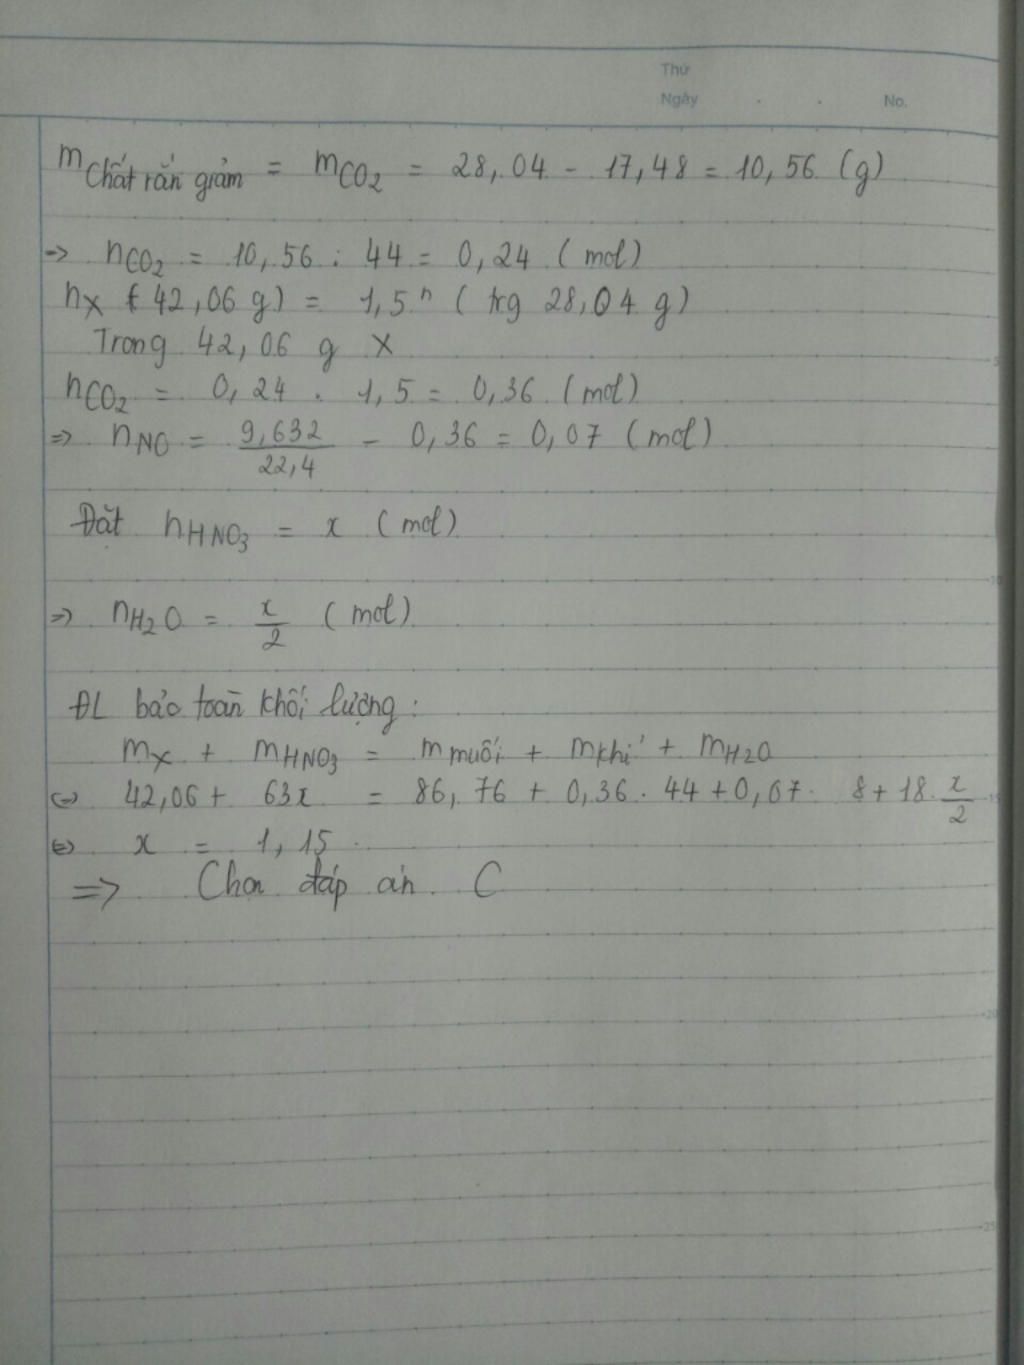 Thứ
Ngày . . No.
m Chất rắn giảm = mCO2 = 28,04 - 17,48 = 10,56 (g)
=> nCO2 = 10,56 : 44 = 0,24 (mol)
nX (42,06 g) = 1,5 n (trg 28,04 g)
Trong 42,06 g X
nCO2 = 0,24 . 1,5 = 0,36 (mol)
=> nNO = 9,632/22,4 - 0,36 = 0,07 (mol)
Đặt nHNO3 = x (mol)
=> nH2O = x/2 (mol)
ĐL bảo toàn khối lượng:
mX + mHNO3 = m muối + m khí + mH2O
<=> 42,06 + 63x = 86,76 + 0,36 . 44 + 0,07 . 8 + 18 . x/2
<=> x = 1,15
=> Chọn đáp án C